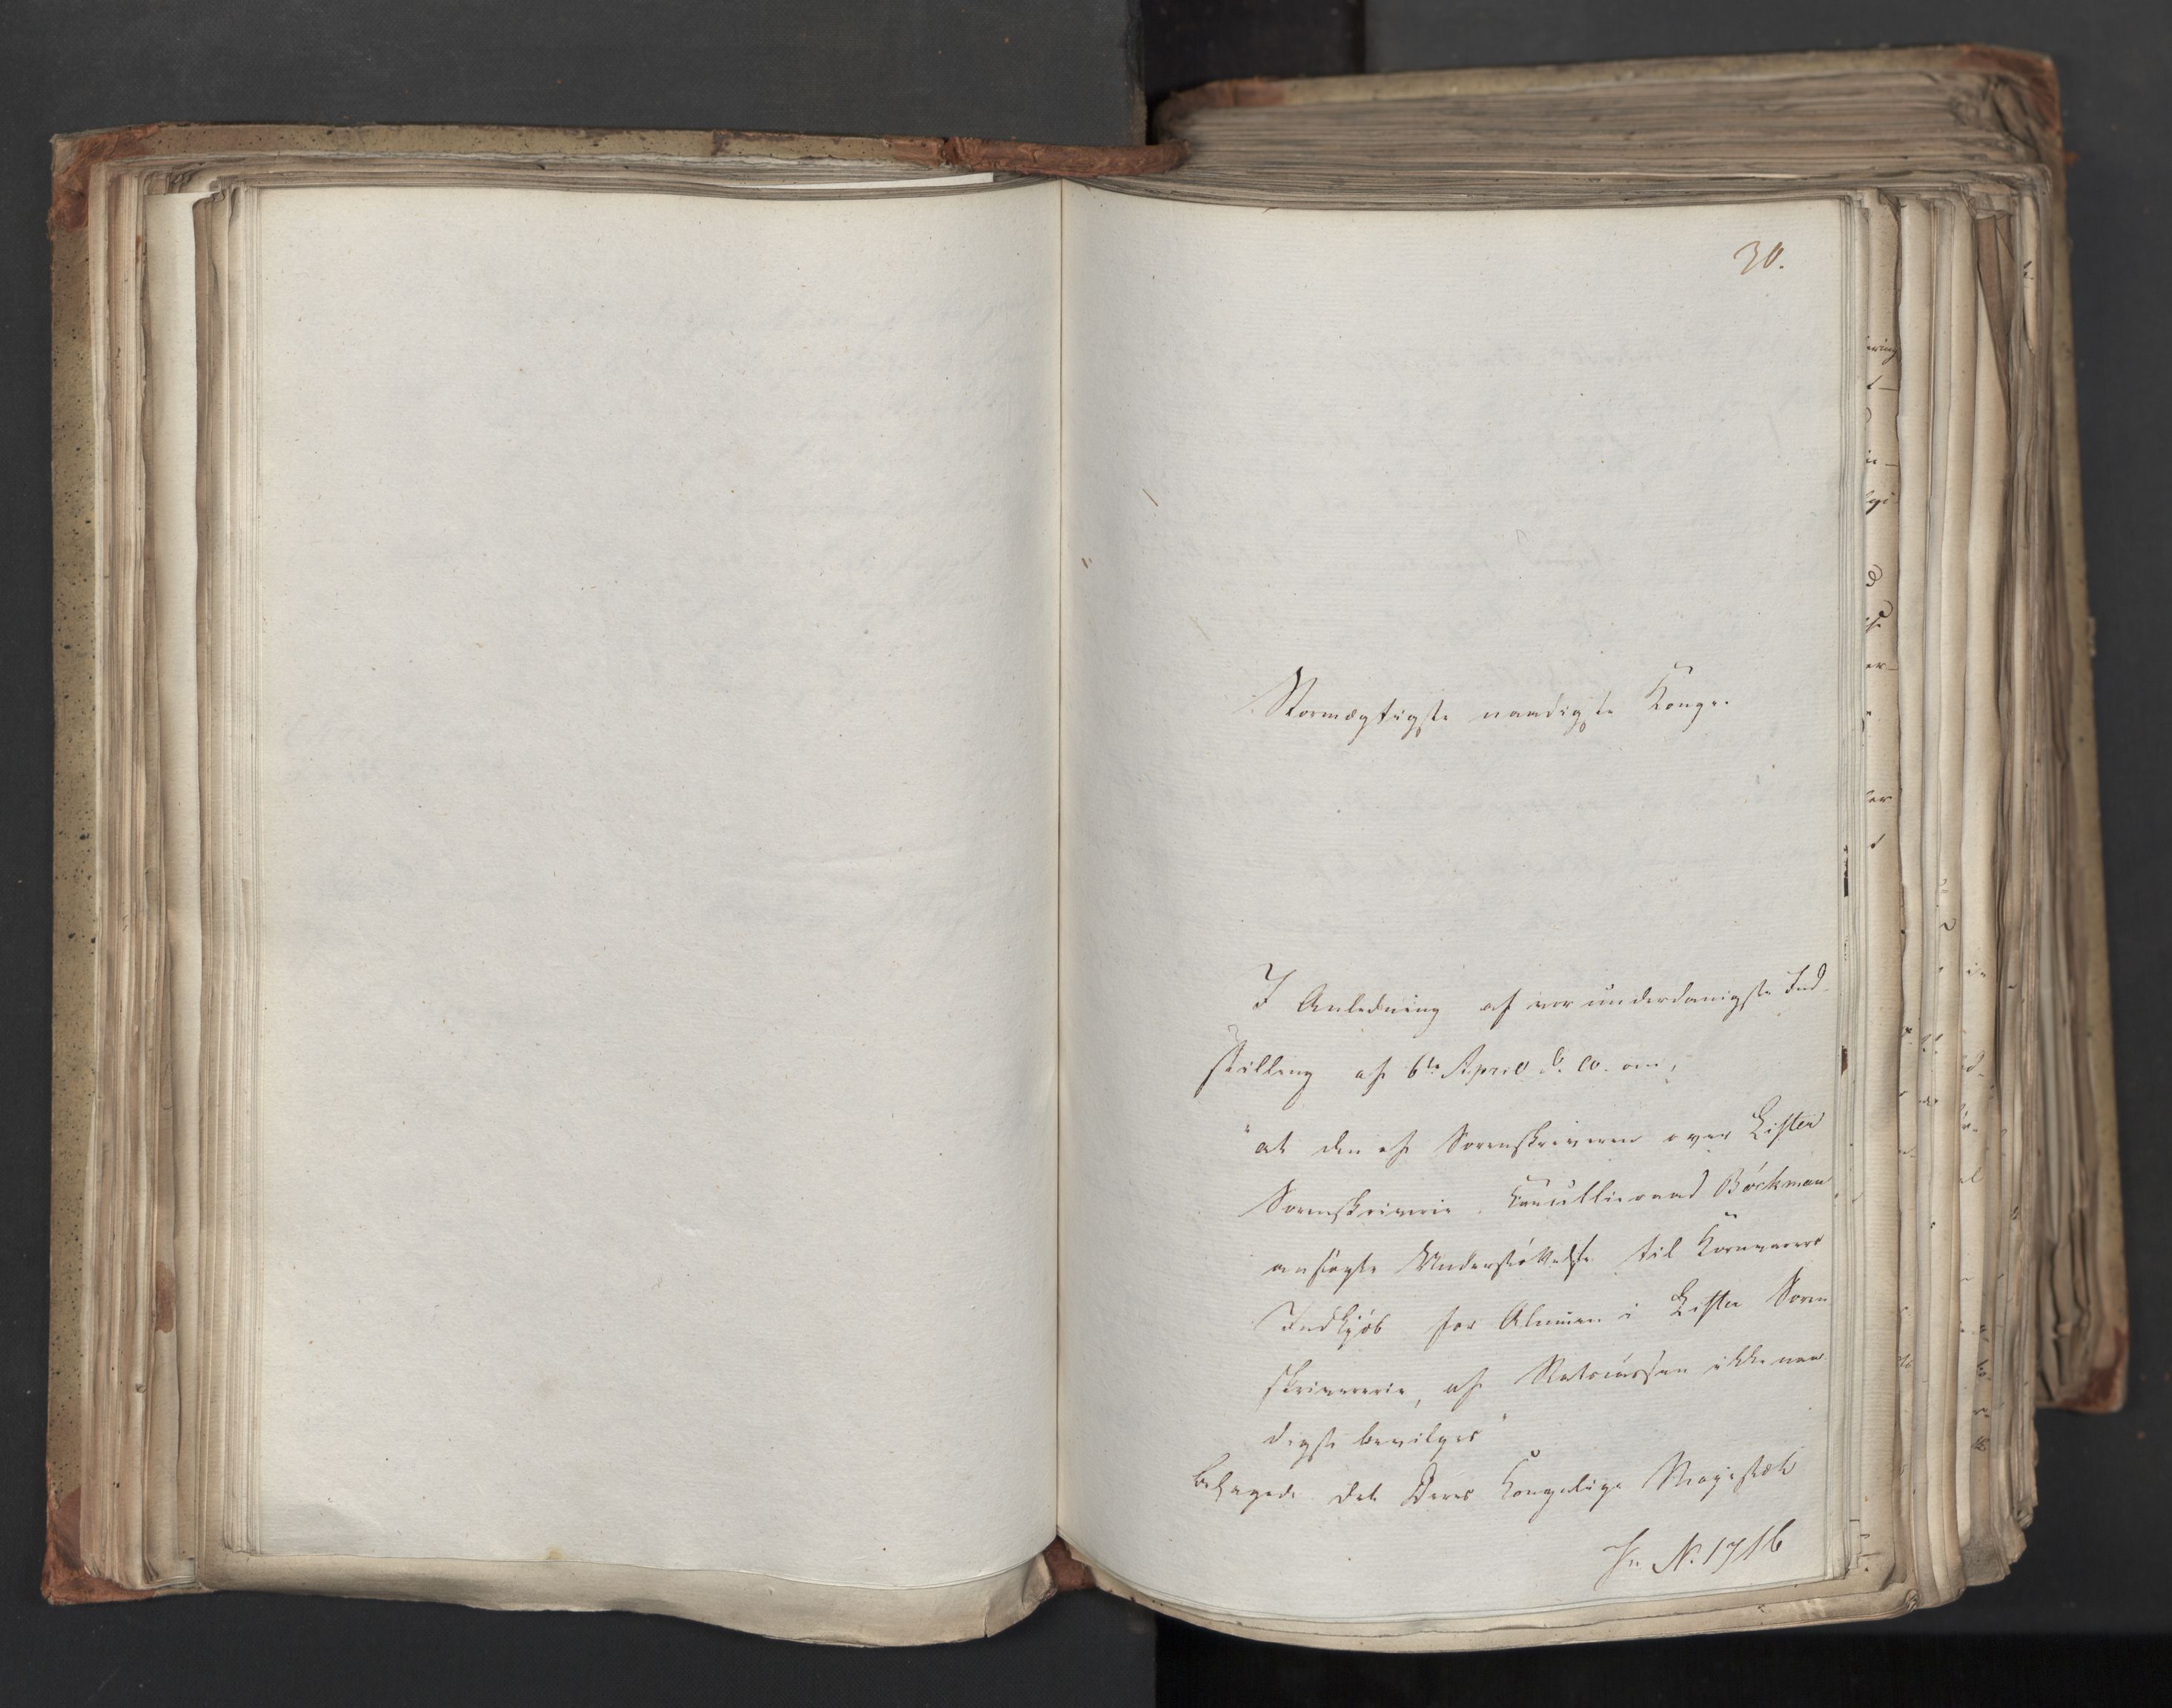 30.
Stormægtigste naadigste Konge.
I Anledning af vor underdanigste Ind-
stilling af 6te April d. A. om,
"at den af Sorenskriveren over Lister
Sorenskriverie, Cancellieraad Bőckman
ansøgte Understøttelse til Kornvarers
Indkjøb for Almuen i Lister Soren
skriverie, af Statscassen ikke naa
digst bevilges"
behagede det Deres Kongelige Majestæt
Jn. N. 1716